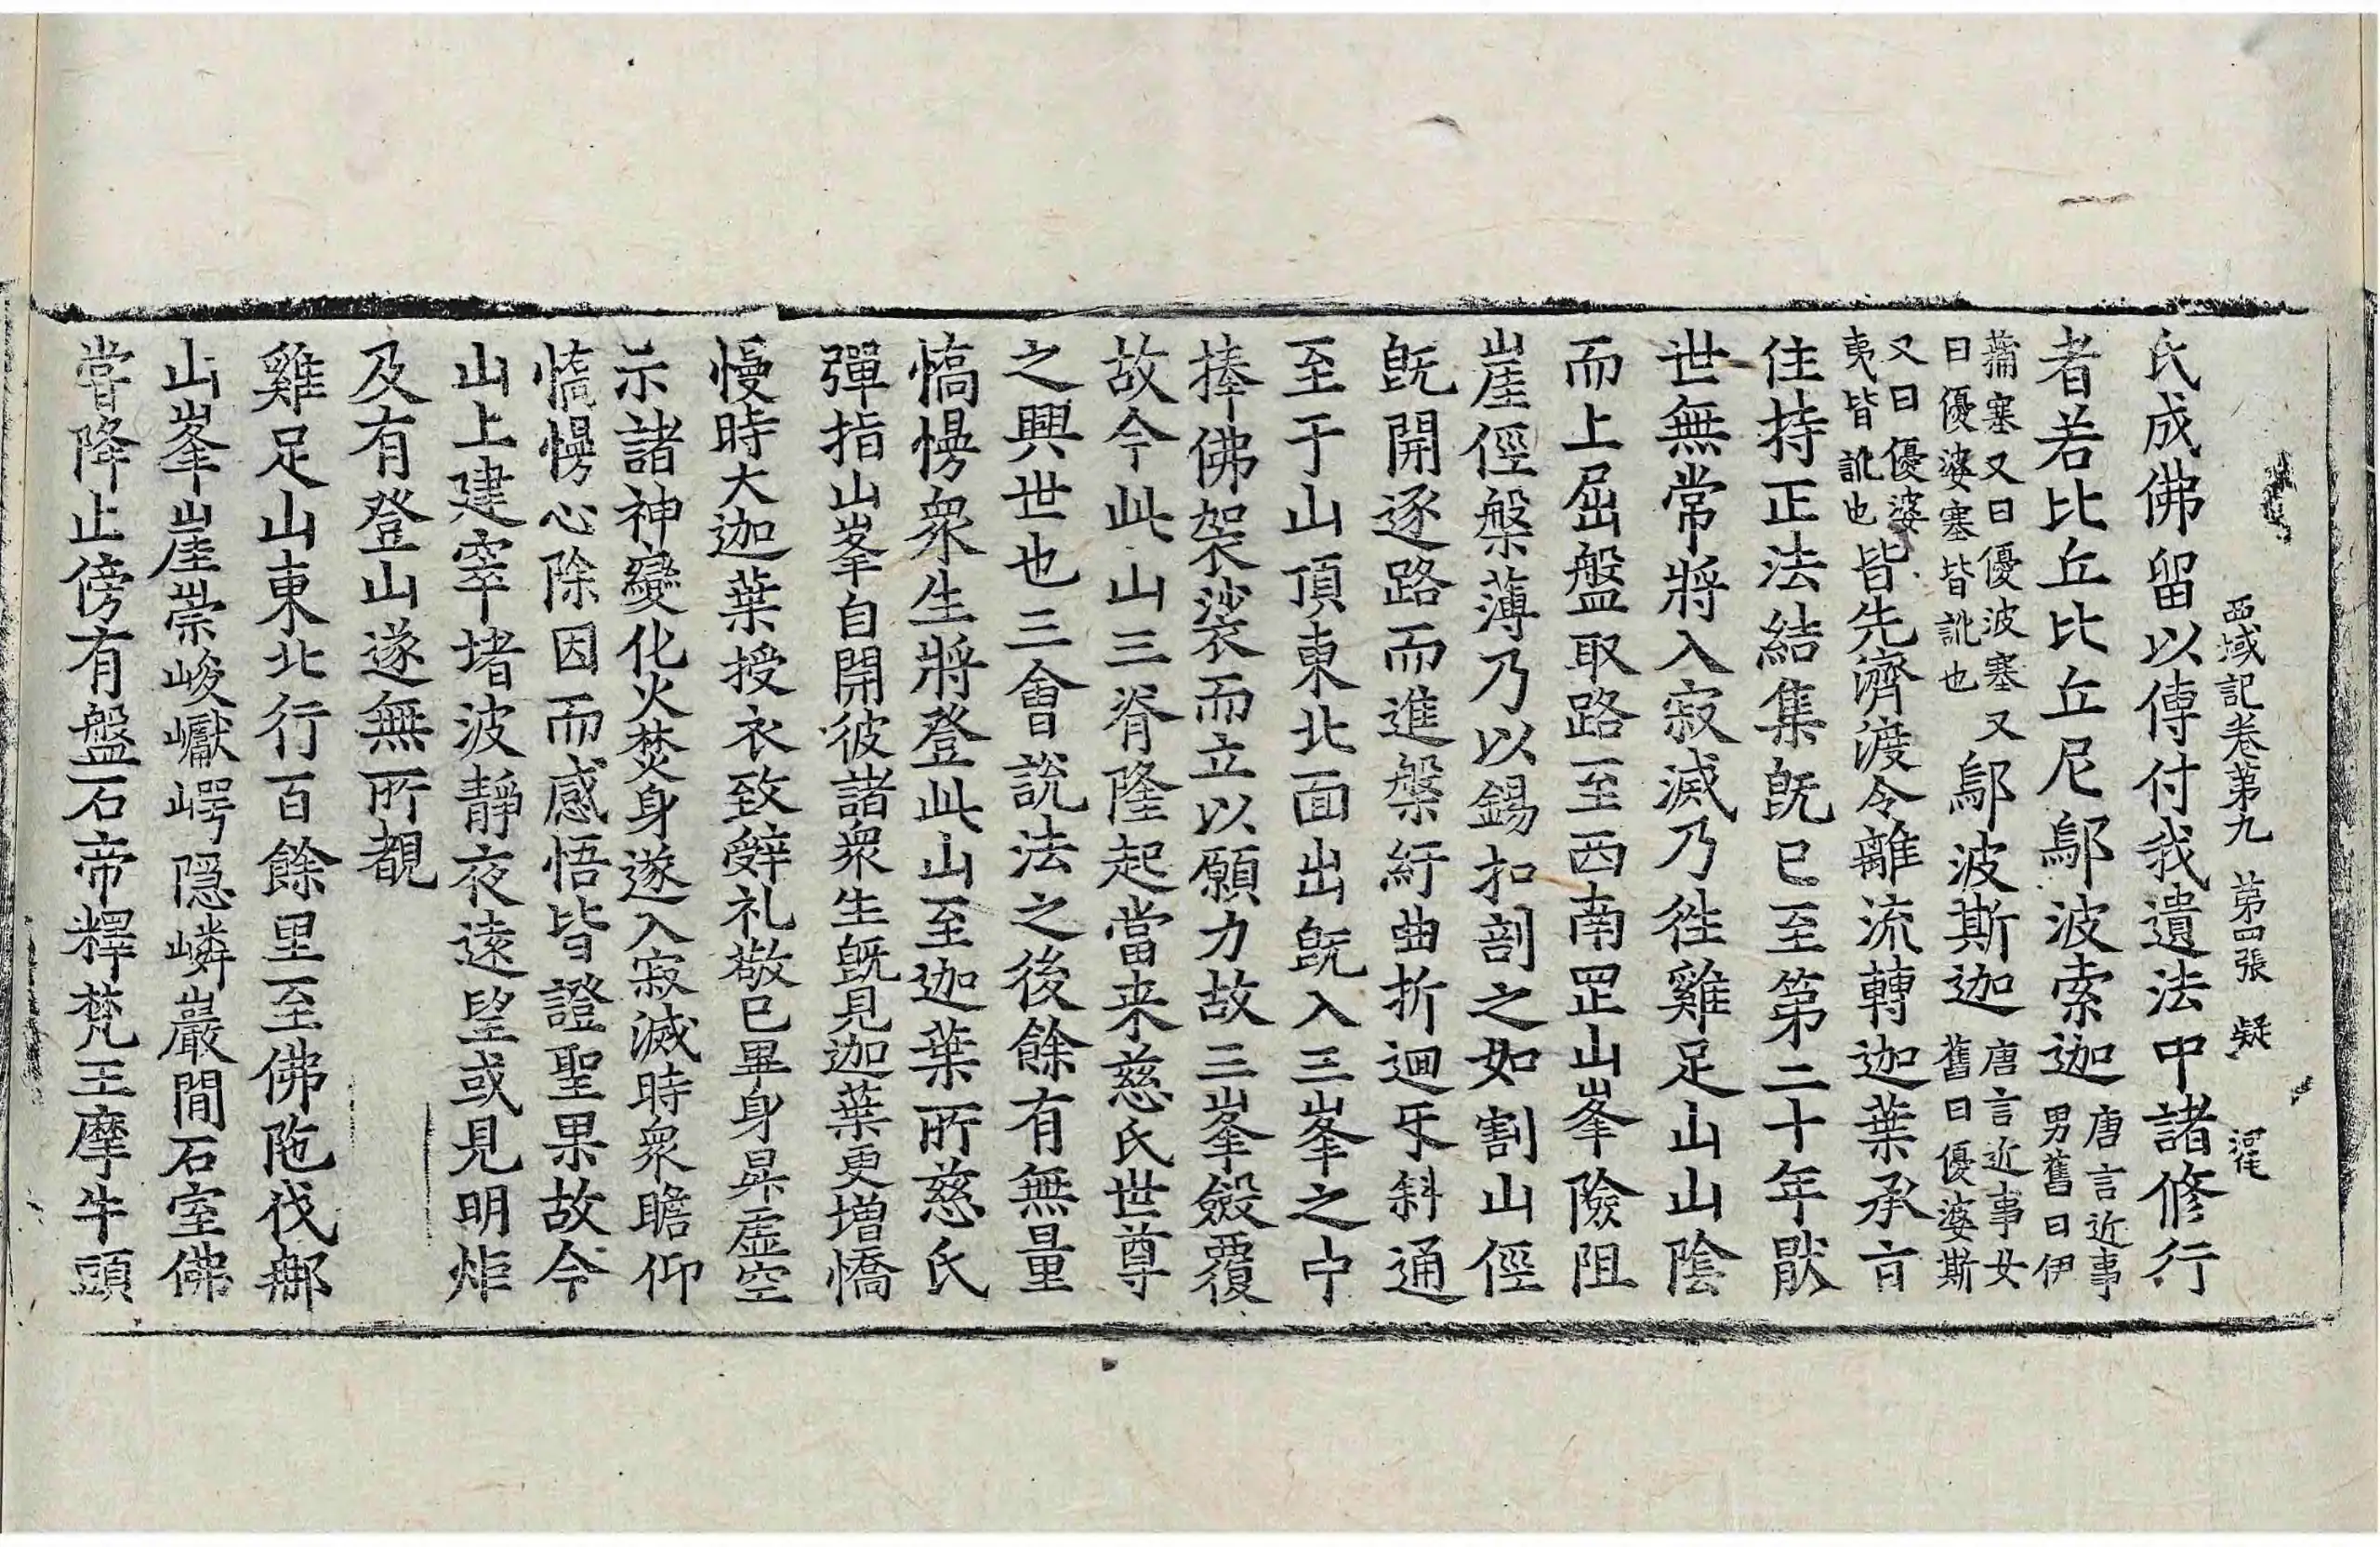 西域記卷第九 第四張 疑
氏成佛留以傳付我遺法中諸修行
者若比丘比丘尼鄔波索迦唐言近事男舊曰伊
蒲塞又曰優波塞又曰優婆塞皆訛也鄔波斯迦唐言近事女舊曰優婆斯
又曰優婆夷皆訛也皆先濟渡令離流轉迦葉承旨
住持正法結集旣已至第二十年猒
世無常將入寂滅乃往雞足山山陰
而上屈盤取路至西南罡山峯險阻
崖徑槃薄乃以錫扣剖之如割山徑
旣開逐路而進槃紆曲折迴互斜通
至于山頂東北面出旣入三峯之中
捧佛袈裟而立以願力故三峯斂覆
故今此山三脊隆起當来慈氏世尊
之興世也三會說法之後餘有無量
憍慢衆生將登此山至迦葉所慈氏
彈指山峯自開彼諸衆生旣見迦葉更增憍
慢時大迦葉授衣致辝礼敬已畢身昇虛空
示諸神變化火焚身遂入寂滅時衆瞻仰
憍慢心除因而感悟皆證聖果故今
山上建窣堵波靜夜遠望或見明炬
及有登山遂無所覩
雞足山東北行百餘里至佛陁伐那
山峯崖崇峻巘崿隱嶙巖間石室佛
嘗降止傍有盤石帝釋梵王摩牛頭